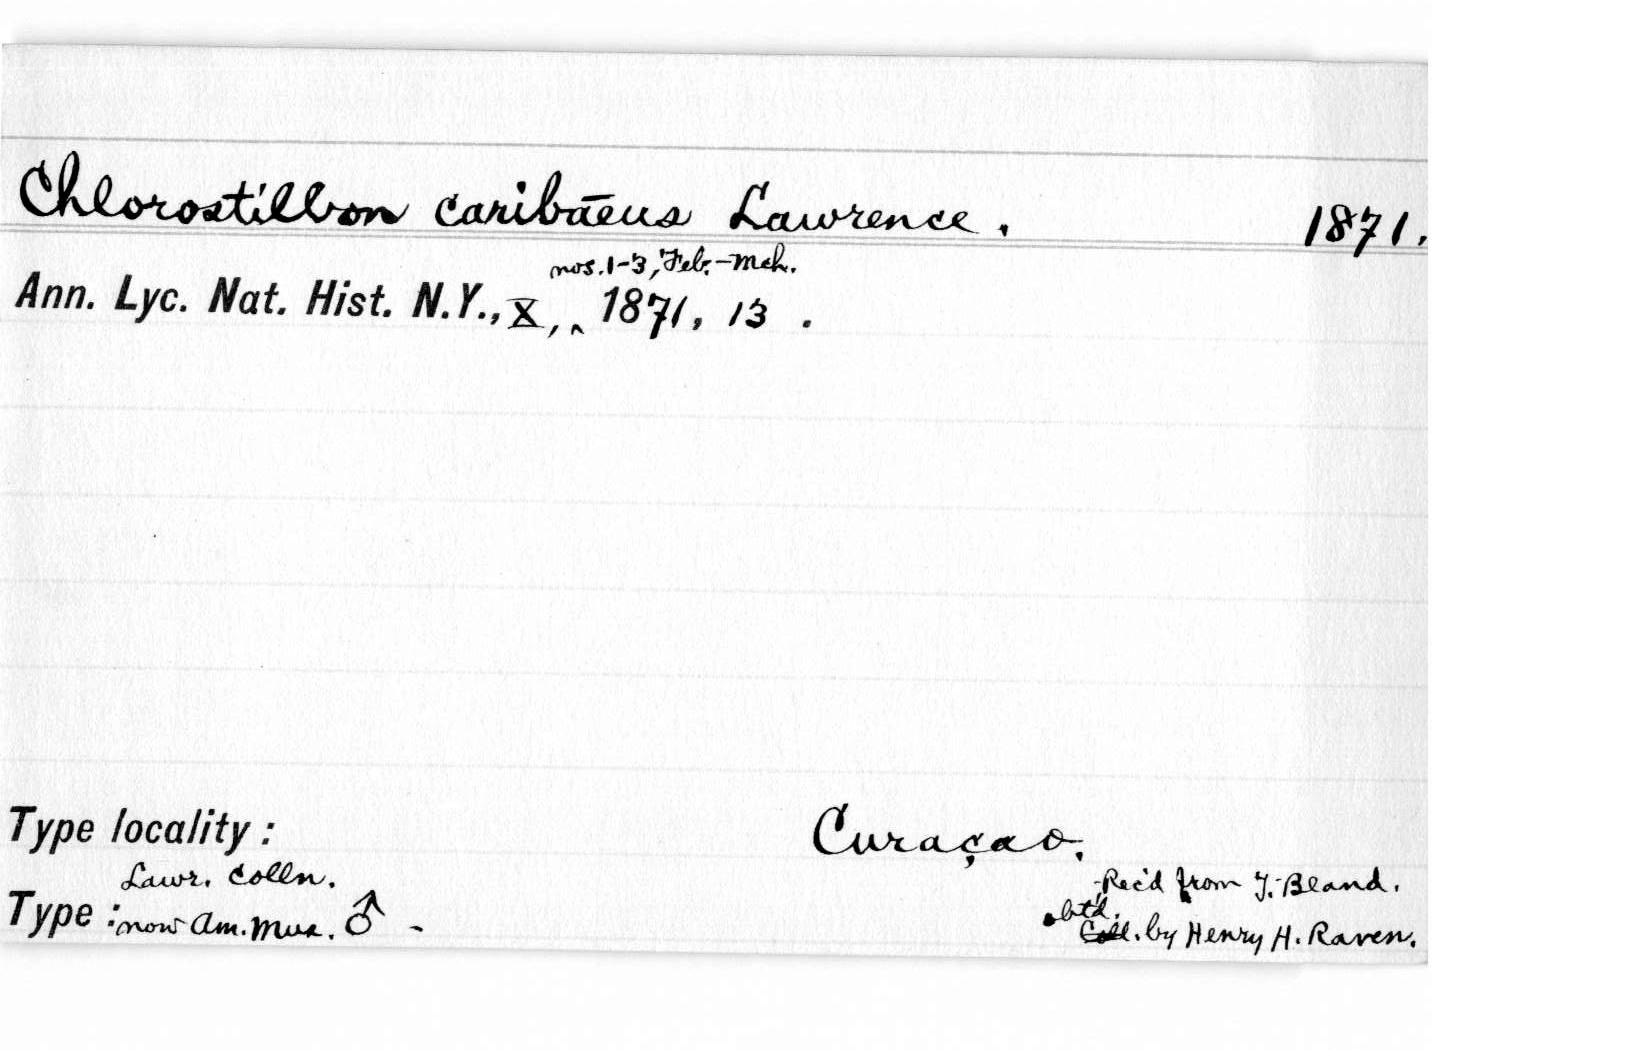 Chlorostilbon caribāeus Lawrence. 1871.
nos. 1-3, Feb.-Mch.
Ann. Lyc. Nat. Hist. N.Y., X, ‸ 1871, 13 .
Type locality: Curaçao.
Lawr. Colln. Rec'd from T. Bland.
obtd.
Type: now Am. Mus. ♂ - Coll. by Henry H. Raven.